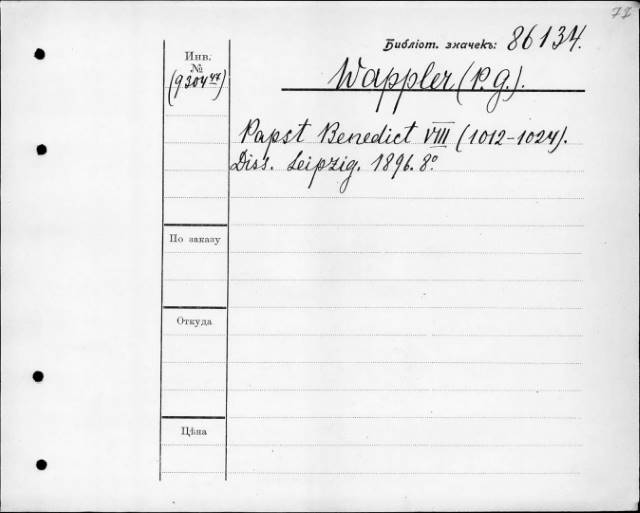 72
Библіот. значекъ: 86134.
Инв.
№
(9304⁴⁷)
Wappler (P. G.).
Papst Benedict VIII (1012-1024).
Diss. Leipzig. 1896. 8°
По заказу
Откуда
Цѣна